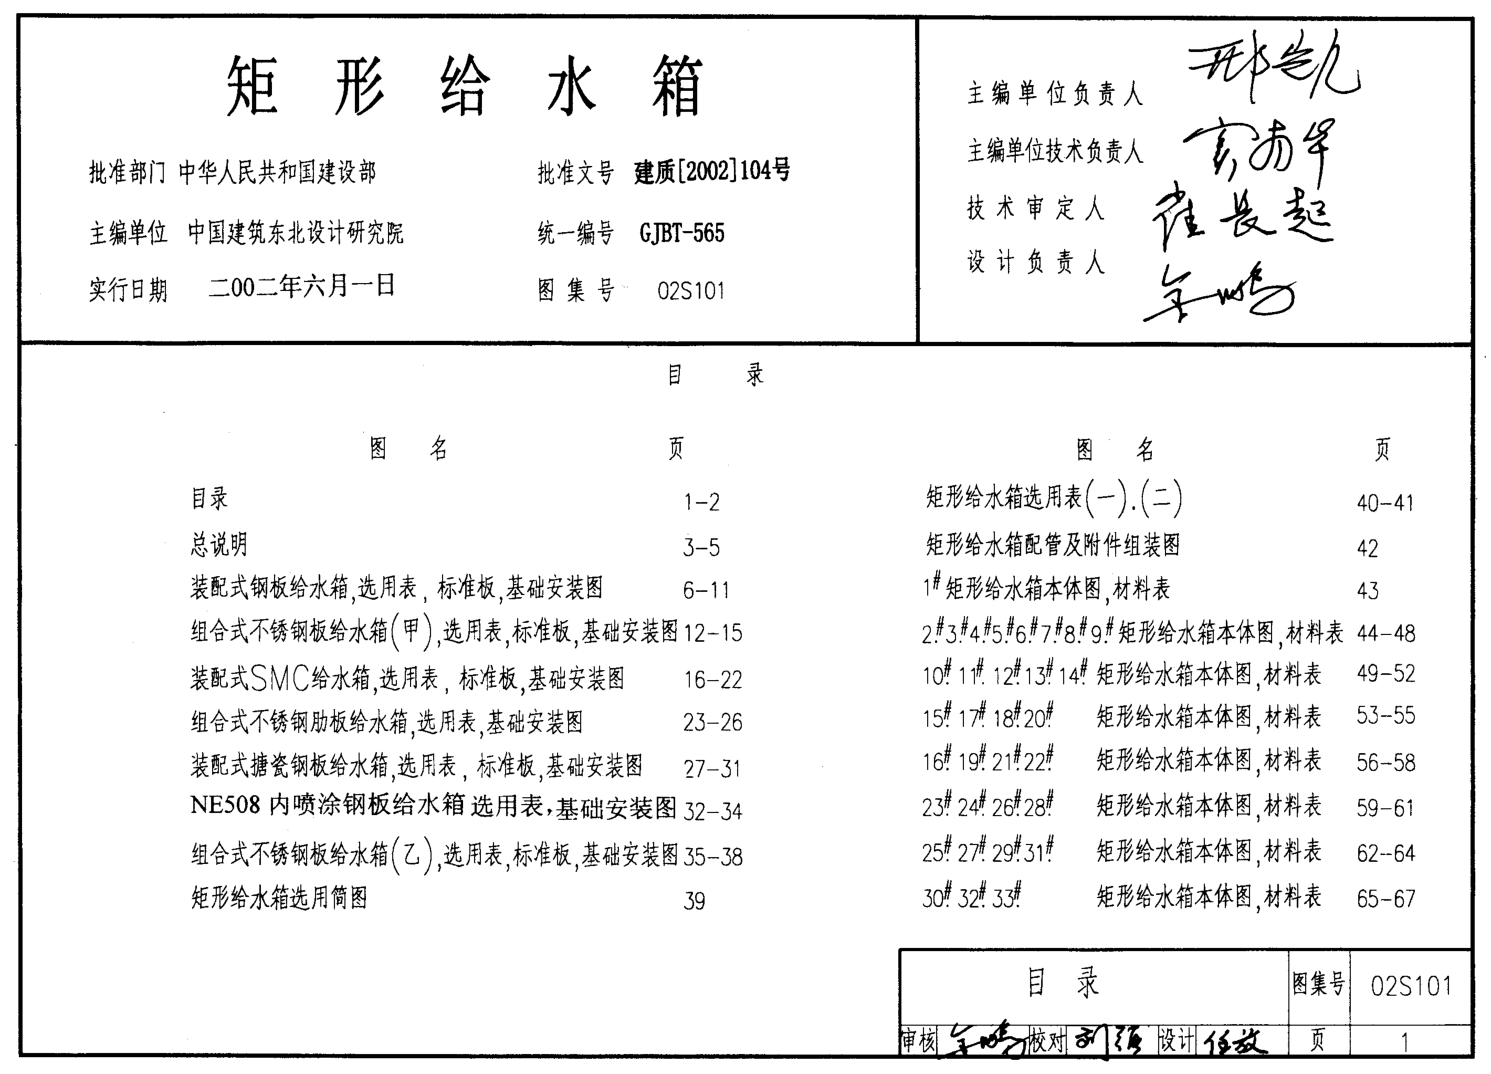 矩形给水箱
批准部门 中华人民共和国建设部 批准文号 建质[2002]104号
主编单位 中国建筑东北设计研究院 统一编号 GJBT-565
实行日期 二00二年六月一日 图集号 02S101
主编单位负责人
主编单位技术负责人
技术审定人 崔长起
设计负责人 金鹏
目 录
图 名 页
目录 1-2
总说明 3-5
装配式钢板给水箱,选用表,标准板,基础安装图 6-11
组合式不锈钢板给水箱(甲),选用表,标准板,基础安装图 12-15
装配式SMC给水箱,选用表,标准板,基础安装图 16-22
组合式不锈钢肋板给水箱,选用表,基础安装图 23-26
装配式搪瓷钢板给水箱,选用表,标准板,基础安装图 27-31
NE508内喷涂钢板给水箱选用表,基础安装图 32-34
组合式不锈钢板给水箱(乙),选用表,标准板,基础安装图 35-38
矩形给水箱选用简图 39
图 名 页
矩形给水箱选用表(一).(二) 40-41
矩形给水箱配管及附件组装图 42
1#矩形给水箱本体图,材料表 43
2#.3#.4#.5#.6#.7#.8#.9#.矩形给水箱本体图,材料表 44-48
10#.11#.12#.13#.14#.矩形给水箱本体图,材料表 49-52
15#.17#.18#.20# 矩形给水箱本体图,材料表 53-55
16#.19#.21#.22# 矩形给水箱本体图,材料表 56-58
23#.24#.26#.28# 矩形给水箱本体图,材料表 59-61
25#.27#.29#.31#. 矩形给水箱本体图,材料表 62-64
30#.32#.33#. 矩形给水箱本体图,材料表 65-67
目 录 图集号 02S101
审核 金鹏 校对 刘强 设计 任放 页 1